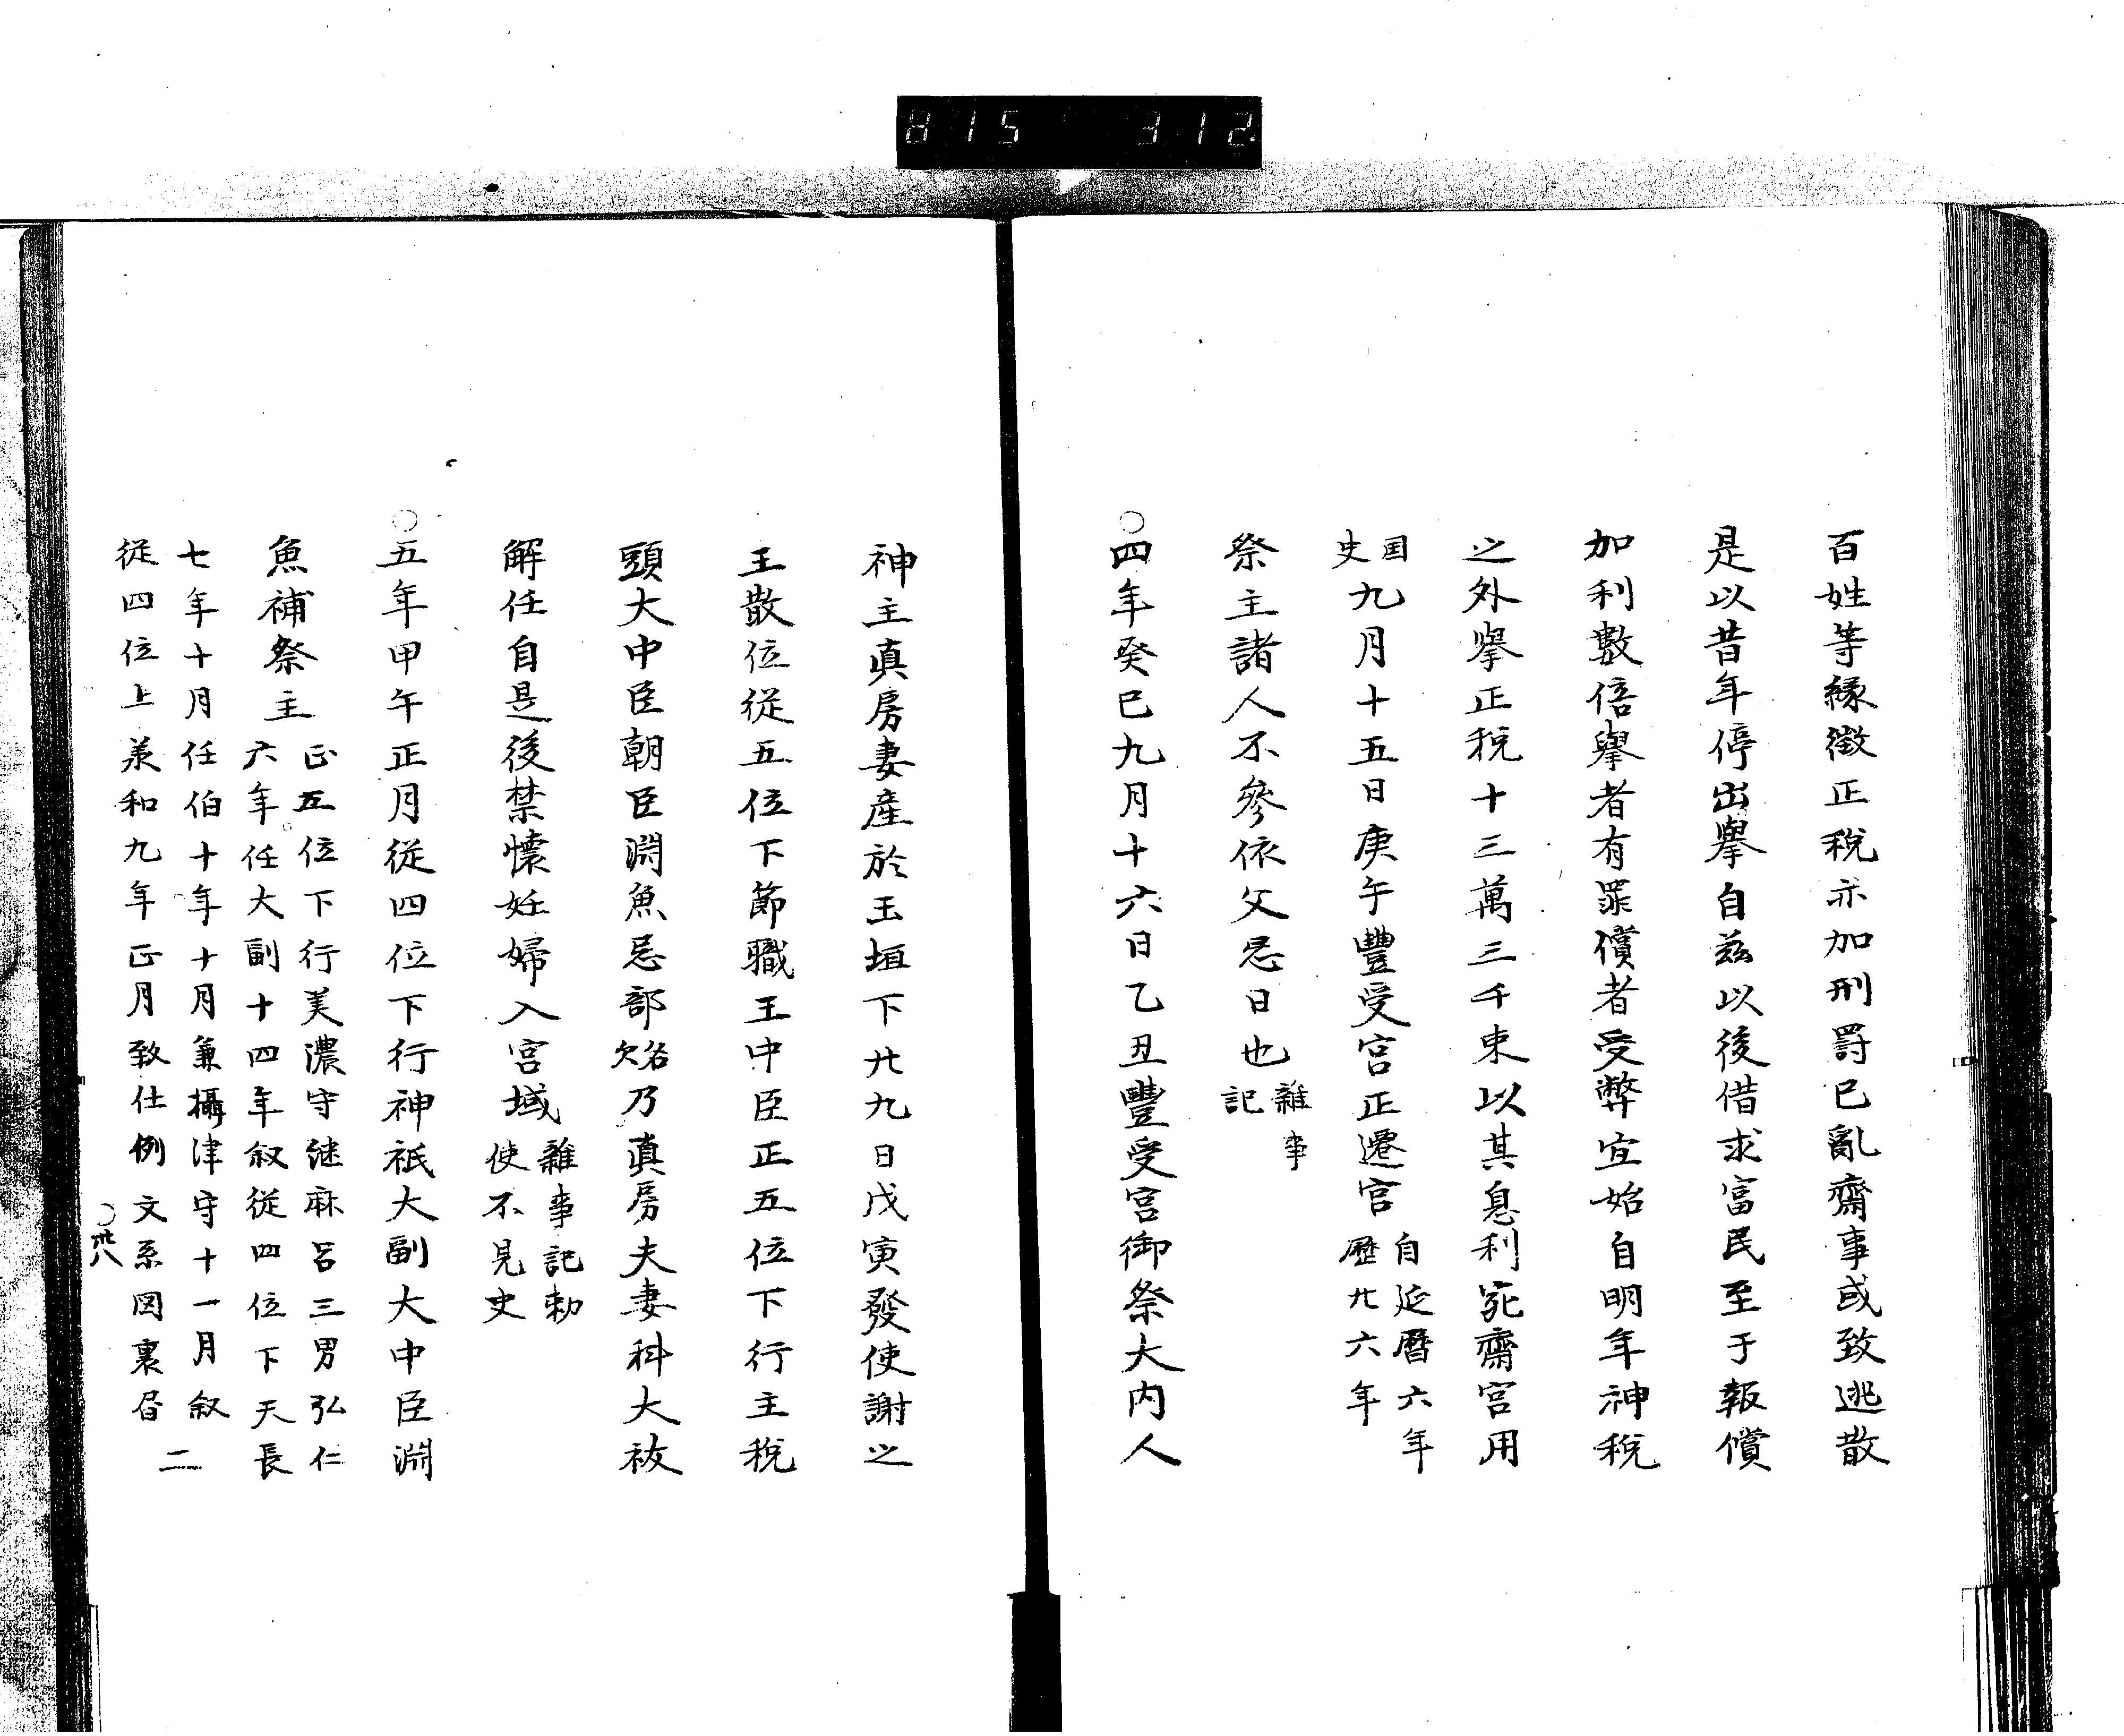 815 312
百姓等緣徴正稅亦加刑罸已亂齋事或致逃散
是以昔年停出擧自茲以後借求富民至于報償
加利數倍擧者有罪償者受弊宜始自明年神稅
之外擧正稅十三萬三千束以其息利宛齋宮用
国史九月十五日庚午豐受宮正遷宮自延曆六年歷廿六年
祭主諸人不參依父忌日也雜事記
○四年癸巳九月十六日乙丑豐受宮御祭大内人
神主眞房妻産於玉垣下廿九日戊寅發使謝之
王散位從五位下節職王中臣正五位下行主稅
頭大中臣朝臣淵魚忌部欠名乃眞房夫妻科大祓
解任自是後禁懷妊婦入宮域雜事記勅使不見史
○五年甲午正月從四位下行神祇大副大中臣淵
魚補祭主正五位下行美濃守継麻呂三男弘仁
六年任大副十四年叙從四位下天長
七年十月任伯十年十月兼攝津守十一月叙
從四位上兼和九年正月致仕例文系図裏昏
二
○卅八